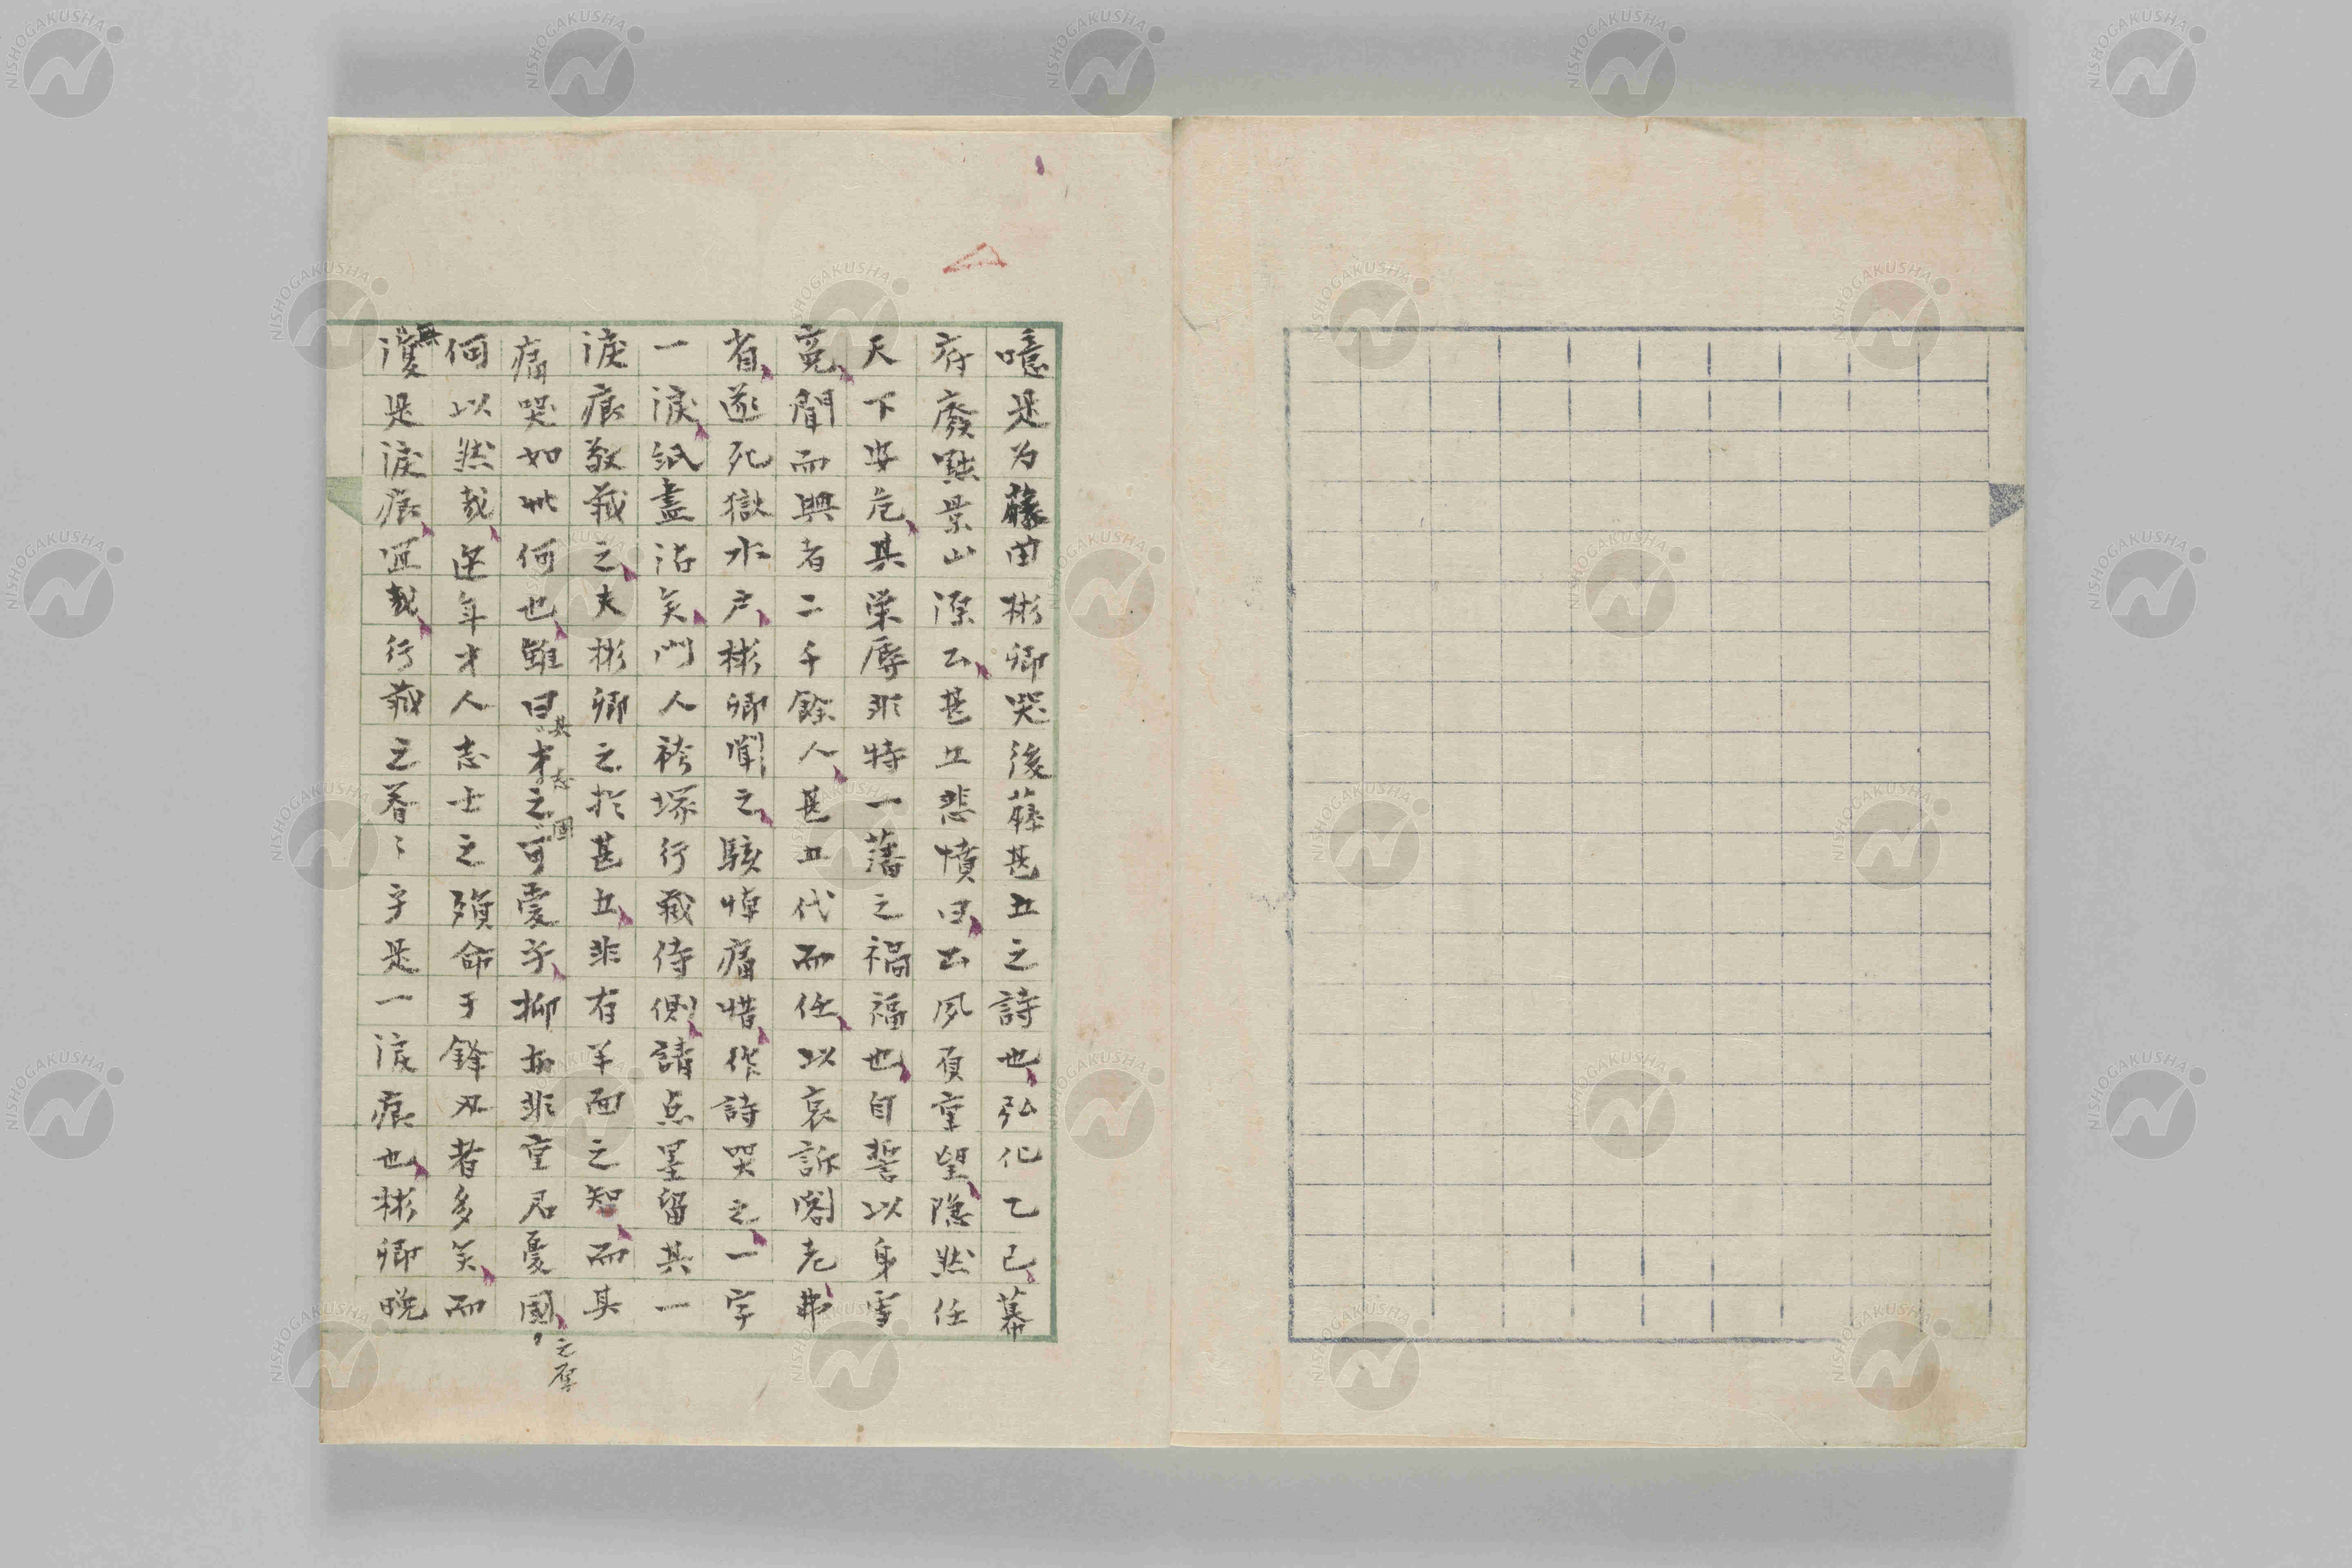 噫是为藤田彬卿哭後藤甚五之詩也弘化乙巳幕
府廢黜景山源公甚五悲憤曰公夙負重望隐然任
天下安危其栄辱非特一藩之禍福也自誓以身雪
寃聞而興者二千餘人甚五代而任以哀訴閣老弗
省遂死獄水戸彬卿聞之駭悼痛惜作詩哭之一字
一淚紙盡沾矣門人袴塚行蔵侍側請点墨留其一
淚痕敬蔵之夫彬卿之於甚五非有半面之知而其
痛哭如此何也雖曰其才之可愛乎抑亦非重君憂國
志
國
之厚
何以然哉近年才人志士之殞命于鋒刃者多矣而
無復是淚痕宜哉行蔵之眷〻乎是一淚痕也彬卿晩
NISHOGAKUSHA